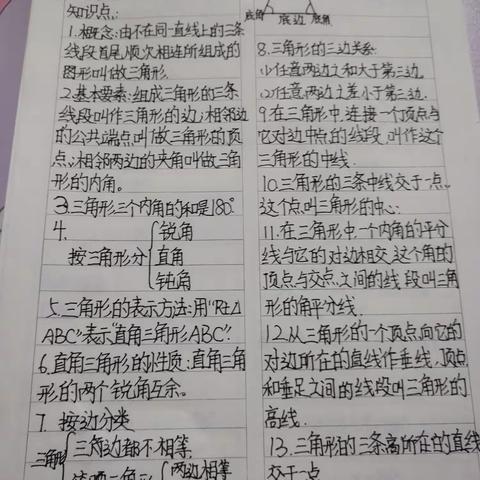 知识点:
1.概念:由不在同一直线上的三条
线段首尾顺次相连所组成的
图形叫做三角形.
2.基本要素:组成三角形的三条
线段叫作三角形的边;相邻边
的公共端点叫做三角形的顶
点;相邻两边的夹角叫做三角
形的内角。
3.三角形三个内角的和是180°
4.
按三角形分
锐角
直角
钝角
5.三角形的表示方法:用“Rt△
ABC”表示“直角三角形ABC”.
6.直角三角形的性质:直角三角
形的两个锐角互余。
7. 按边分类
三角形
三角边都不相等
等腰三角形
两边相等
底角 底边 底角
8.三角形的三边关系
(1)任意两边之和大于第三边.
(2)任意两边之差小于第三边.
9.在三角形中,连接一个顶点与
它对边中点的线段,叫作这个
三角形的中线.
10.三角形的三条中线交于一点。
这个点叫三角形的重心:
11.在三角形中一个内角的平分
线与它的对边相交,这个角的
顶点与交点之间的线段叫三角
形的角平分线.
12.从三角形的一个顶点向它的
对边所在的直线作垂线,顶点
和垂足之间的线段叫三角形的
高线.
13.三角形的三条高所在的直线
交于一点